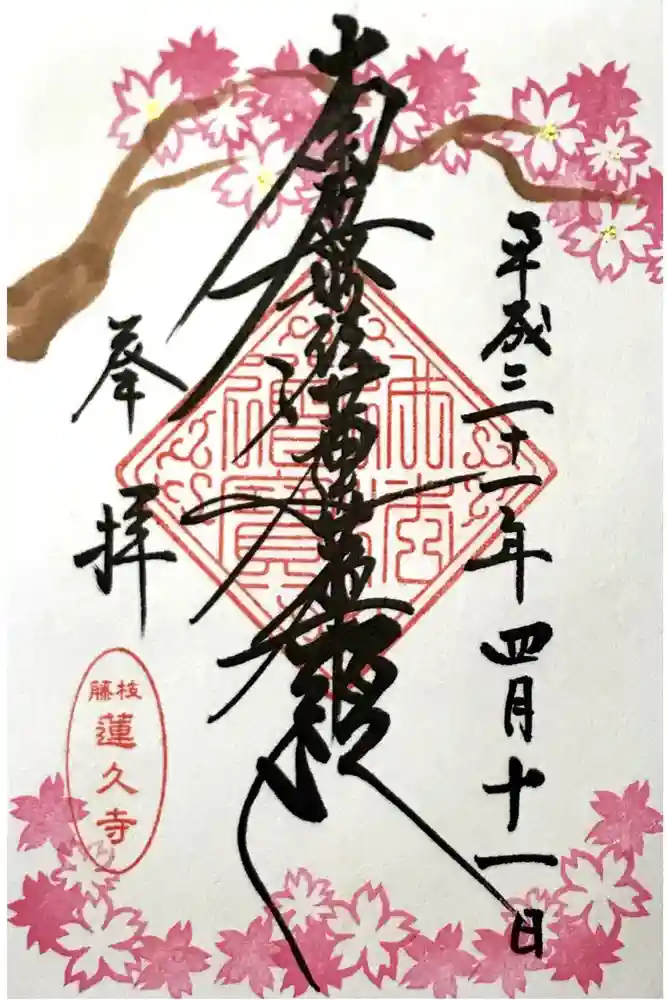 平成三十一年四月十一日
南無妙法蓮華経
奉拝
佛法
僧寳
藤枝
蓮久寺